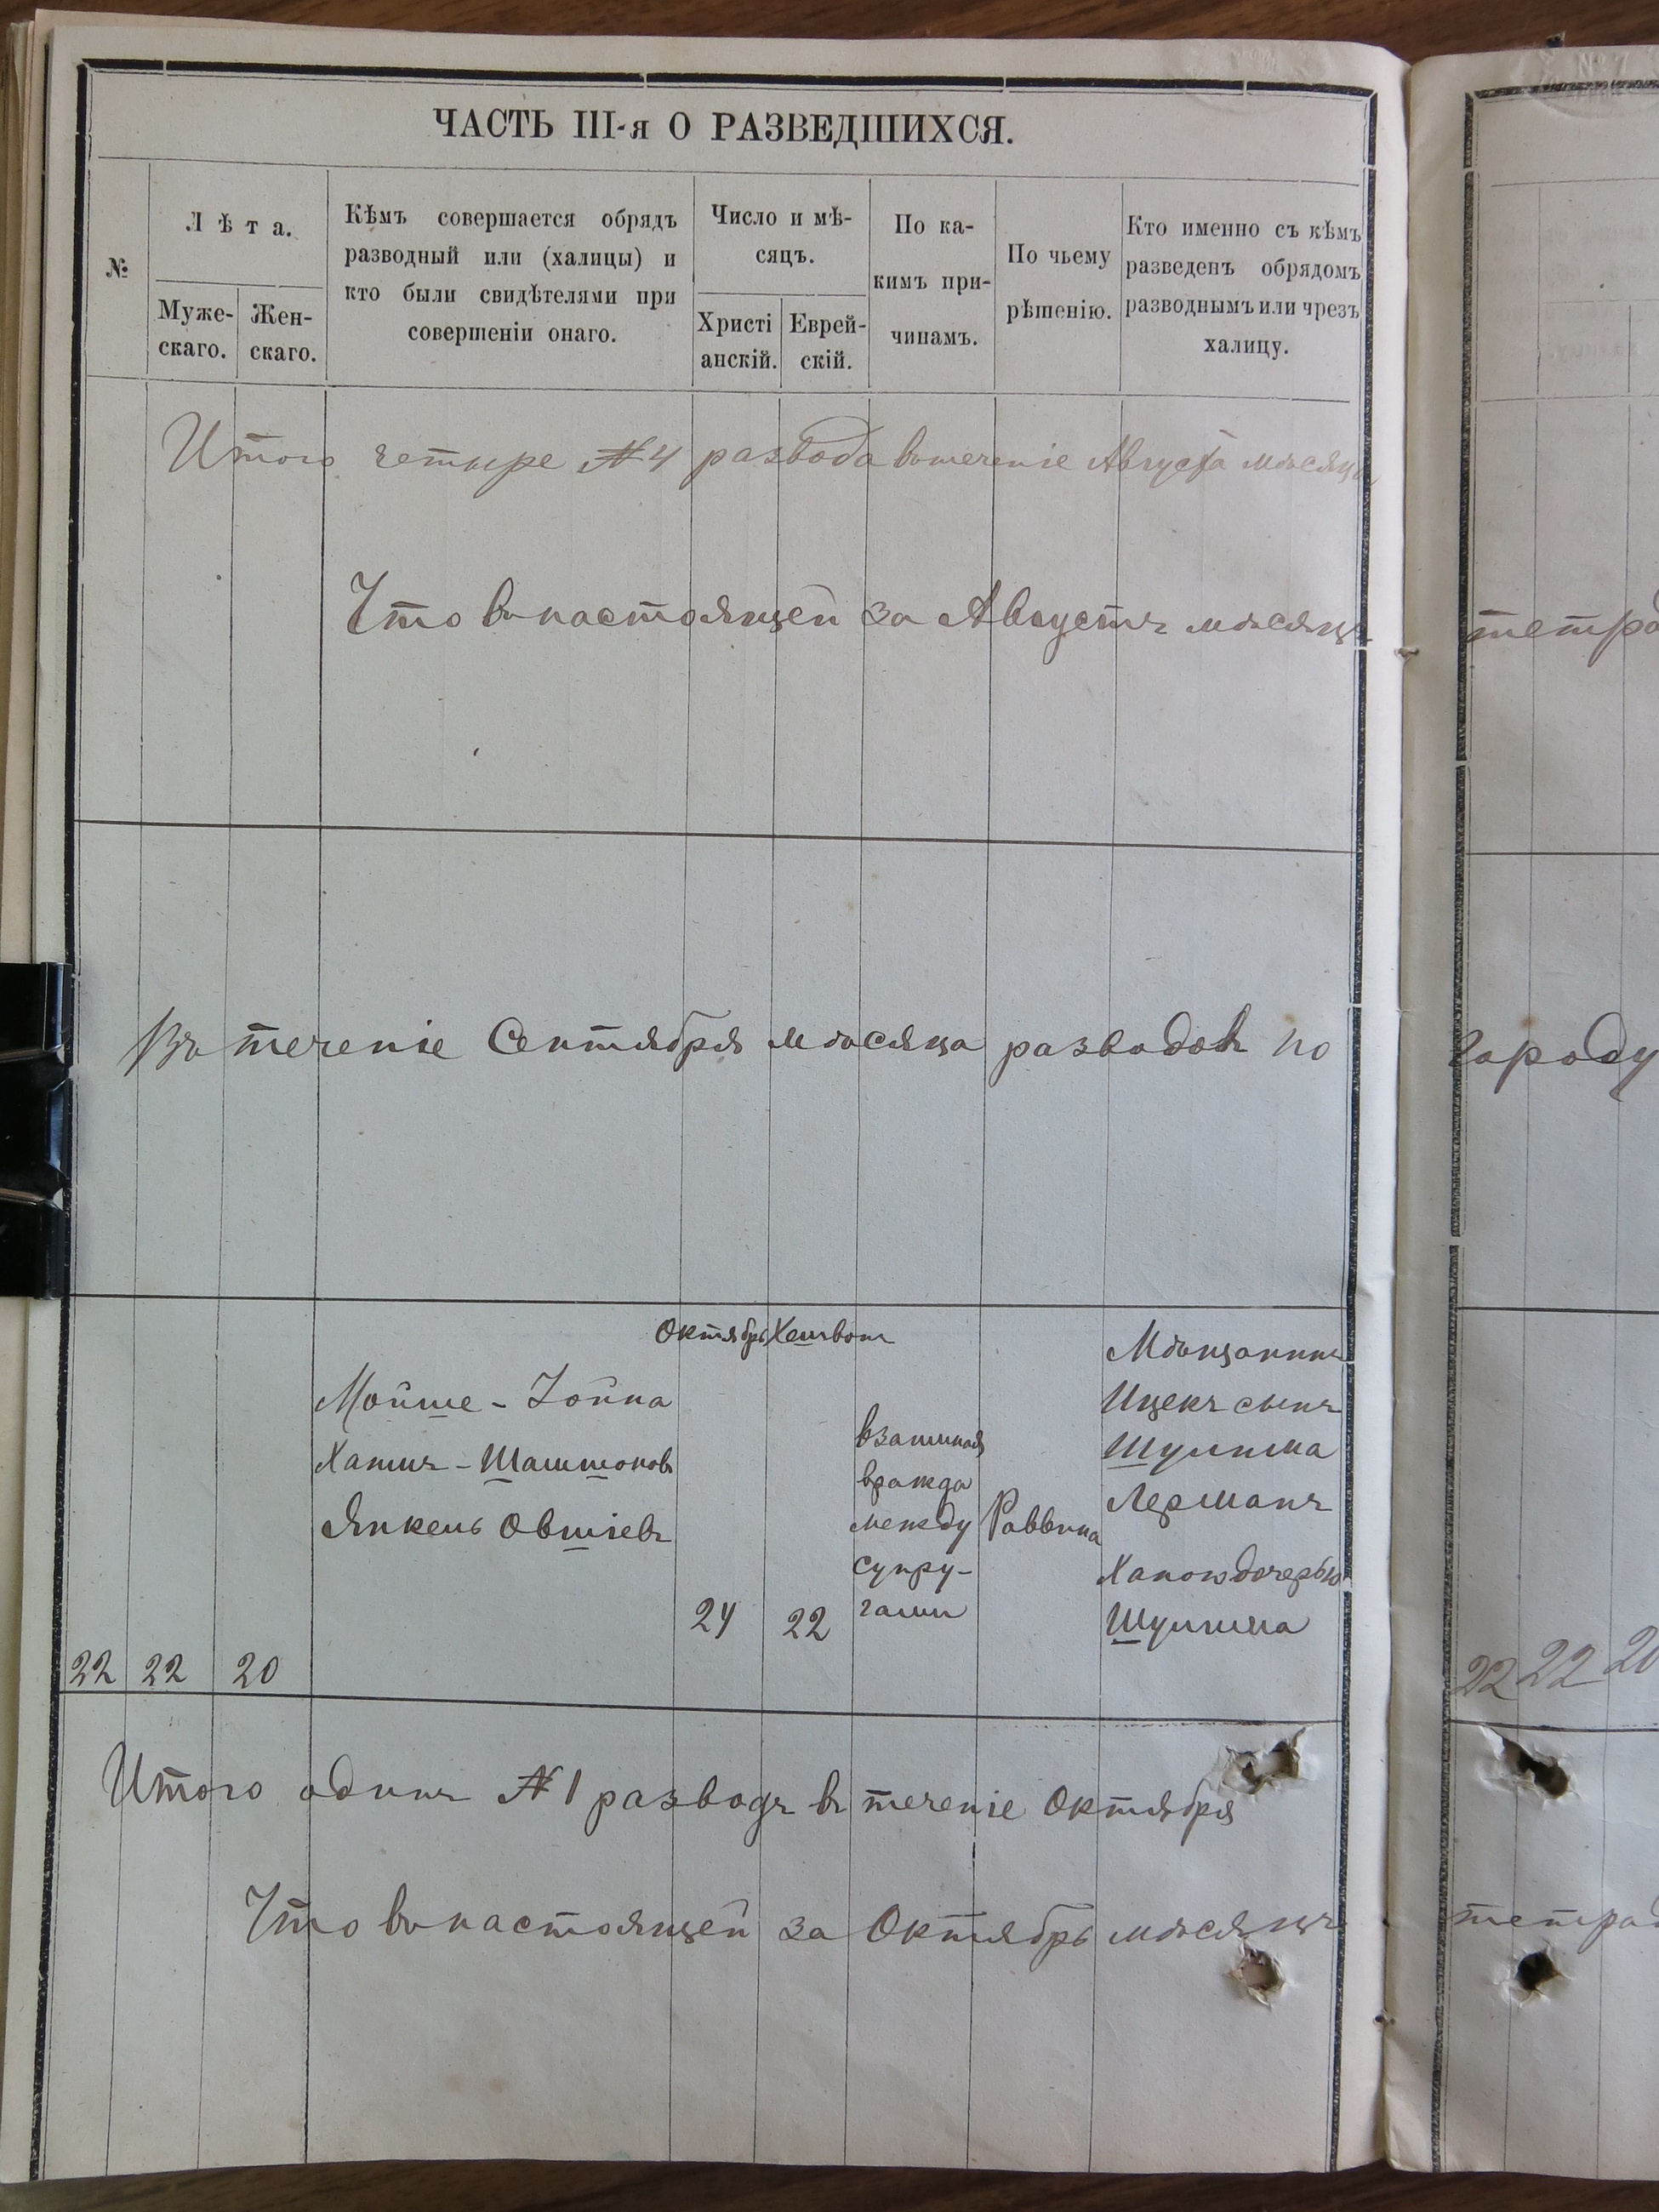 ЧАСТЬ III-я О РАЗВЕДШИХСЯ.
№
Лѣта.
Муже-
скаго.
Жен-
скаго.
Кѣмъ совершается обрядъ
разводный или (халицы) и
кто были свидѣтелями при
совершеніи онаго.
Число и мѣ-
сяцъ.
Христі
анскій.
Еврей-
скій.
По ка-
кимъ при-
чинамъ.
По чьему
рѣшенію.
Кто именно съ кѣмъ
разведенъ обрядомъ
разводнымъ или чрезъ
халицу.
Итого четыре № 4 развода втеченіе Августа мѣсяца
Что въ настоящей за Августъ мѣсяцъ
Въ теченіе Сентября мѣсяца разводовъ по
городу
Октябрь
Хешвон
22
22
20
Мойше - Іойна
Хаимъ - Шаишоновъ
Янкель Овшіевъ
24
22
взаимная
вражда
между
супру-
гами
Раввина
Мѣщанинъ
Ицекъ сынъ
Шулима
Лерманъ
Ханою дочерью
Шулима
22 22
Итого одинъ № 1 разводъ въ теченіе Октября
Что въ настоящей за Октябрь мѣсяцъ